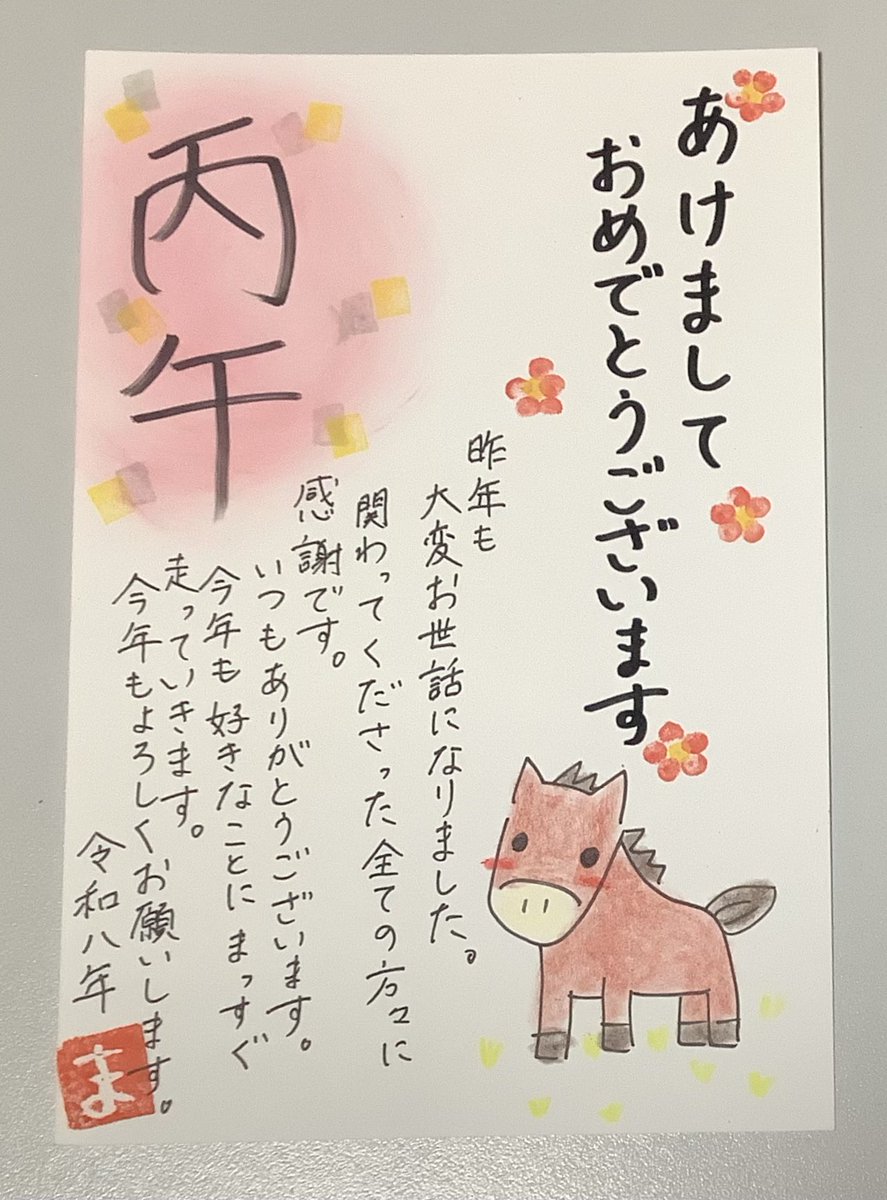 あけまして
おめでとうございます
昨年も
大変お世話になりました。
関わってくださった全ての方々に
感謝です。
いつもありがとうございます。
今年も好きなことにまっすぐ
走っていきます。
今年もよろしくお願いします。
令和八年
丙午
ま